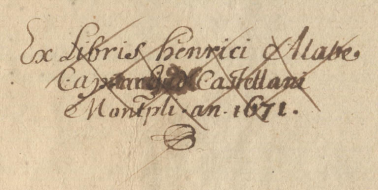 Ex Libris henrici Mabe
Castellani
Montpli. an. 1671.